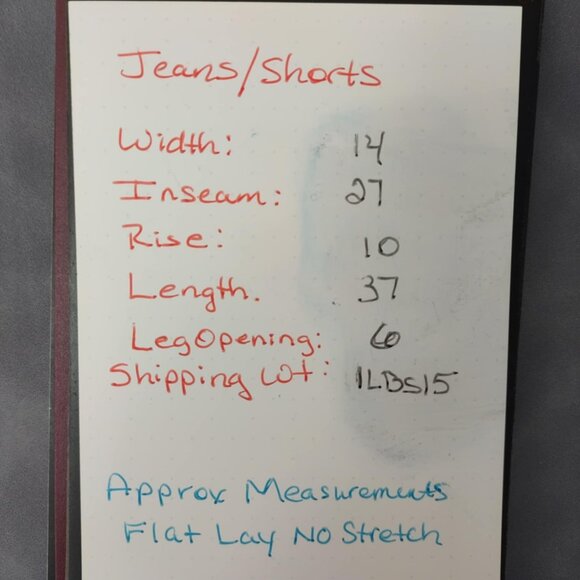 Jeans/Shorts
Width: 14
Inseam: 27
Rise: 10
Length. 37
Leg Opening: 6
Shipping Wt: 1LBS15
Approx Measurements
Flat Lay No Stretch